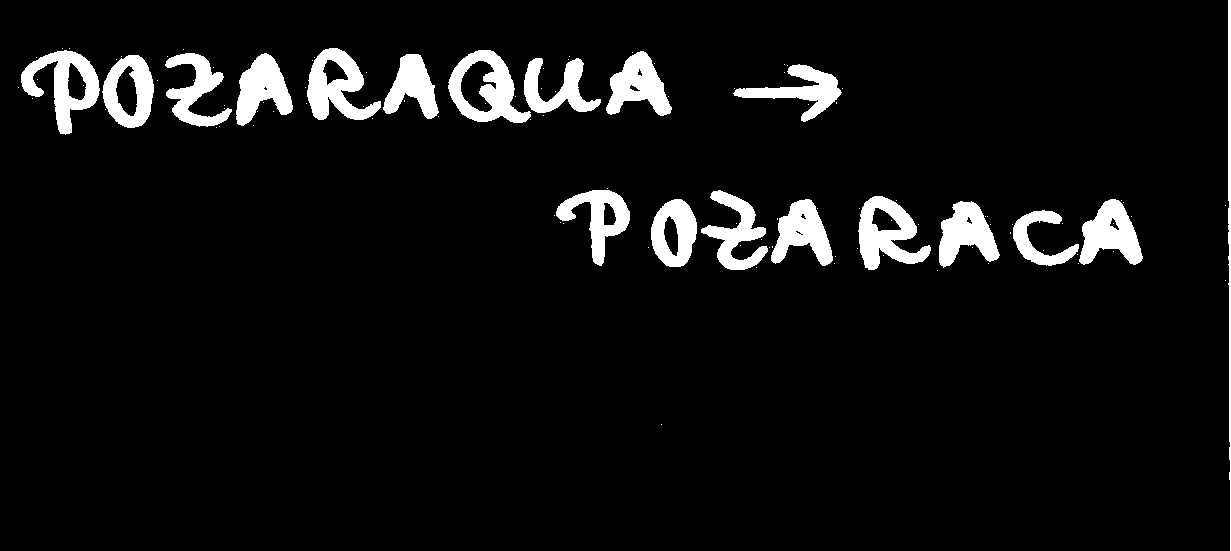 POZARAQUA →
POZARACA